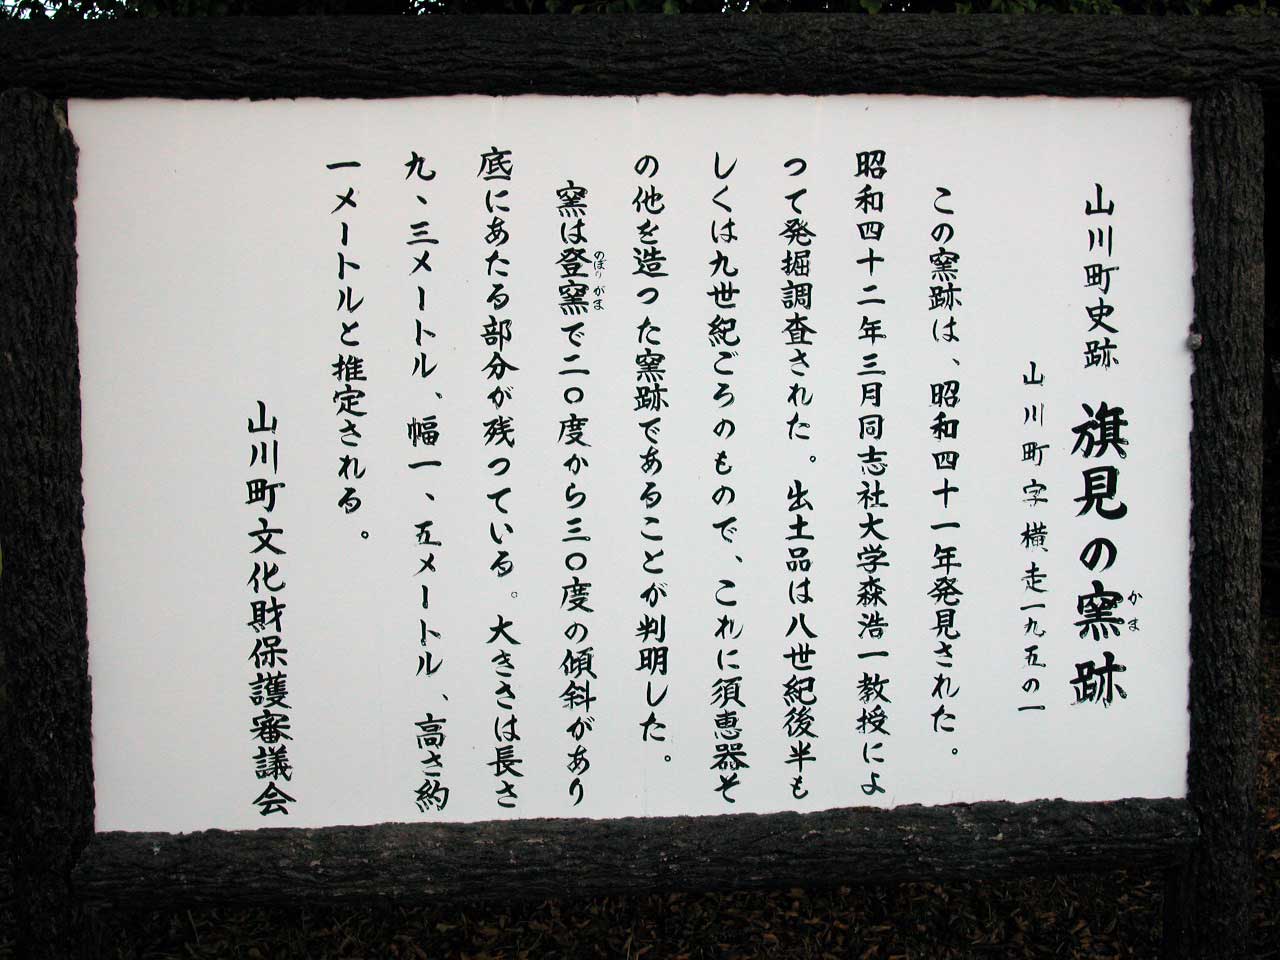 山川町史跡 旗見の窯跡
かま
山川町字横走一九五の一
この窯跡は、昭和四十一年発見された。
昭和四十二年三月同志社大学森浩一教授によ
つて発掘調査された。出土品は八世紀後半も
しくは九世紀ごろのもので、これに須恵器そ
の他を造つた窯跡であることが判明した。
窯は登窯で二〇度から三〇度の傾斜があり
のぼりがま
底にあたる部分が残つている。大きさは長さ
九、三メートル、幅一、五メートル、高さ約
一メートルと推定される。
山川町文化財保護審議会